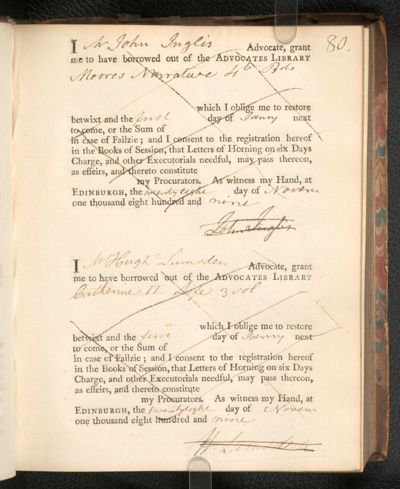 80.
I Mr John Inglis Advocate, grant
me to have borrowed out of the ADVOCATES LIBRARY
Moores Narrative 4to Bds
which I oblige me to restore
betwixt and the first day of Janry next
to come, or the Sum of
in case of Failzie; and I consent to the registration hereof
in the Books of Session, that Letters of Horning on six Days
Charge, and other Executorials needful, may pass thereon,
as effeirs, and thereto constitute
my Procurators. As witness my Hand, at
EDINBURGH, the twentyeight day of Novem
one thousand eight hundred and nine
John Inglis
I Mr Hugh Lumsden Advocate, grant
me to have borrowed out of the ADVOCATES LIBRARY
Catherine II Life 3 vol
which I oblige me to restore
betwixt and the first day of Janry next
to come, or the Sum of
in case of Failzie; and I consent to the registration hereof
in the Books of Session, that Letters of Horning on six Days
Charge, and other Executorials needful, may pass thereon,
as effeirs, and thereto constitute
my Procurators. As witness my Hand, at
EDINBURGH, the twentyeight day of Novem
one thousand eight hundred and nine
H Lumsden